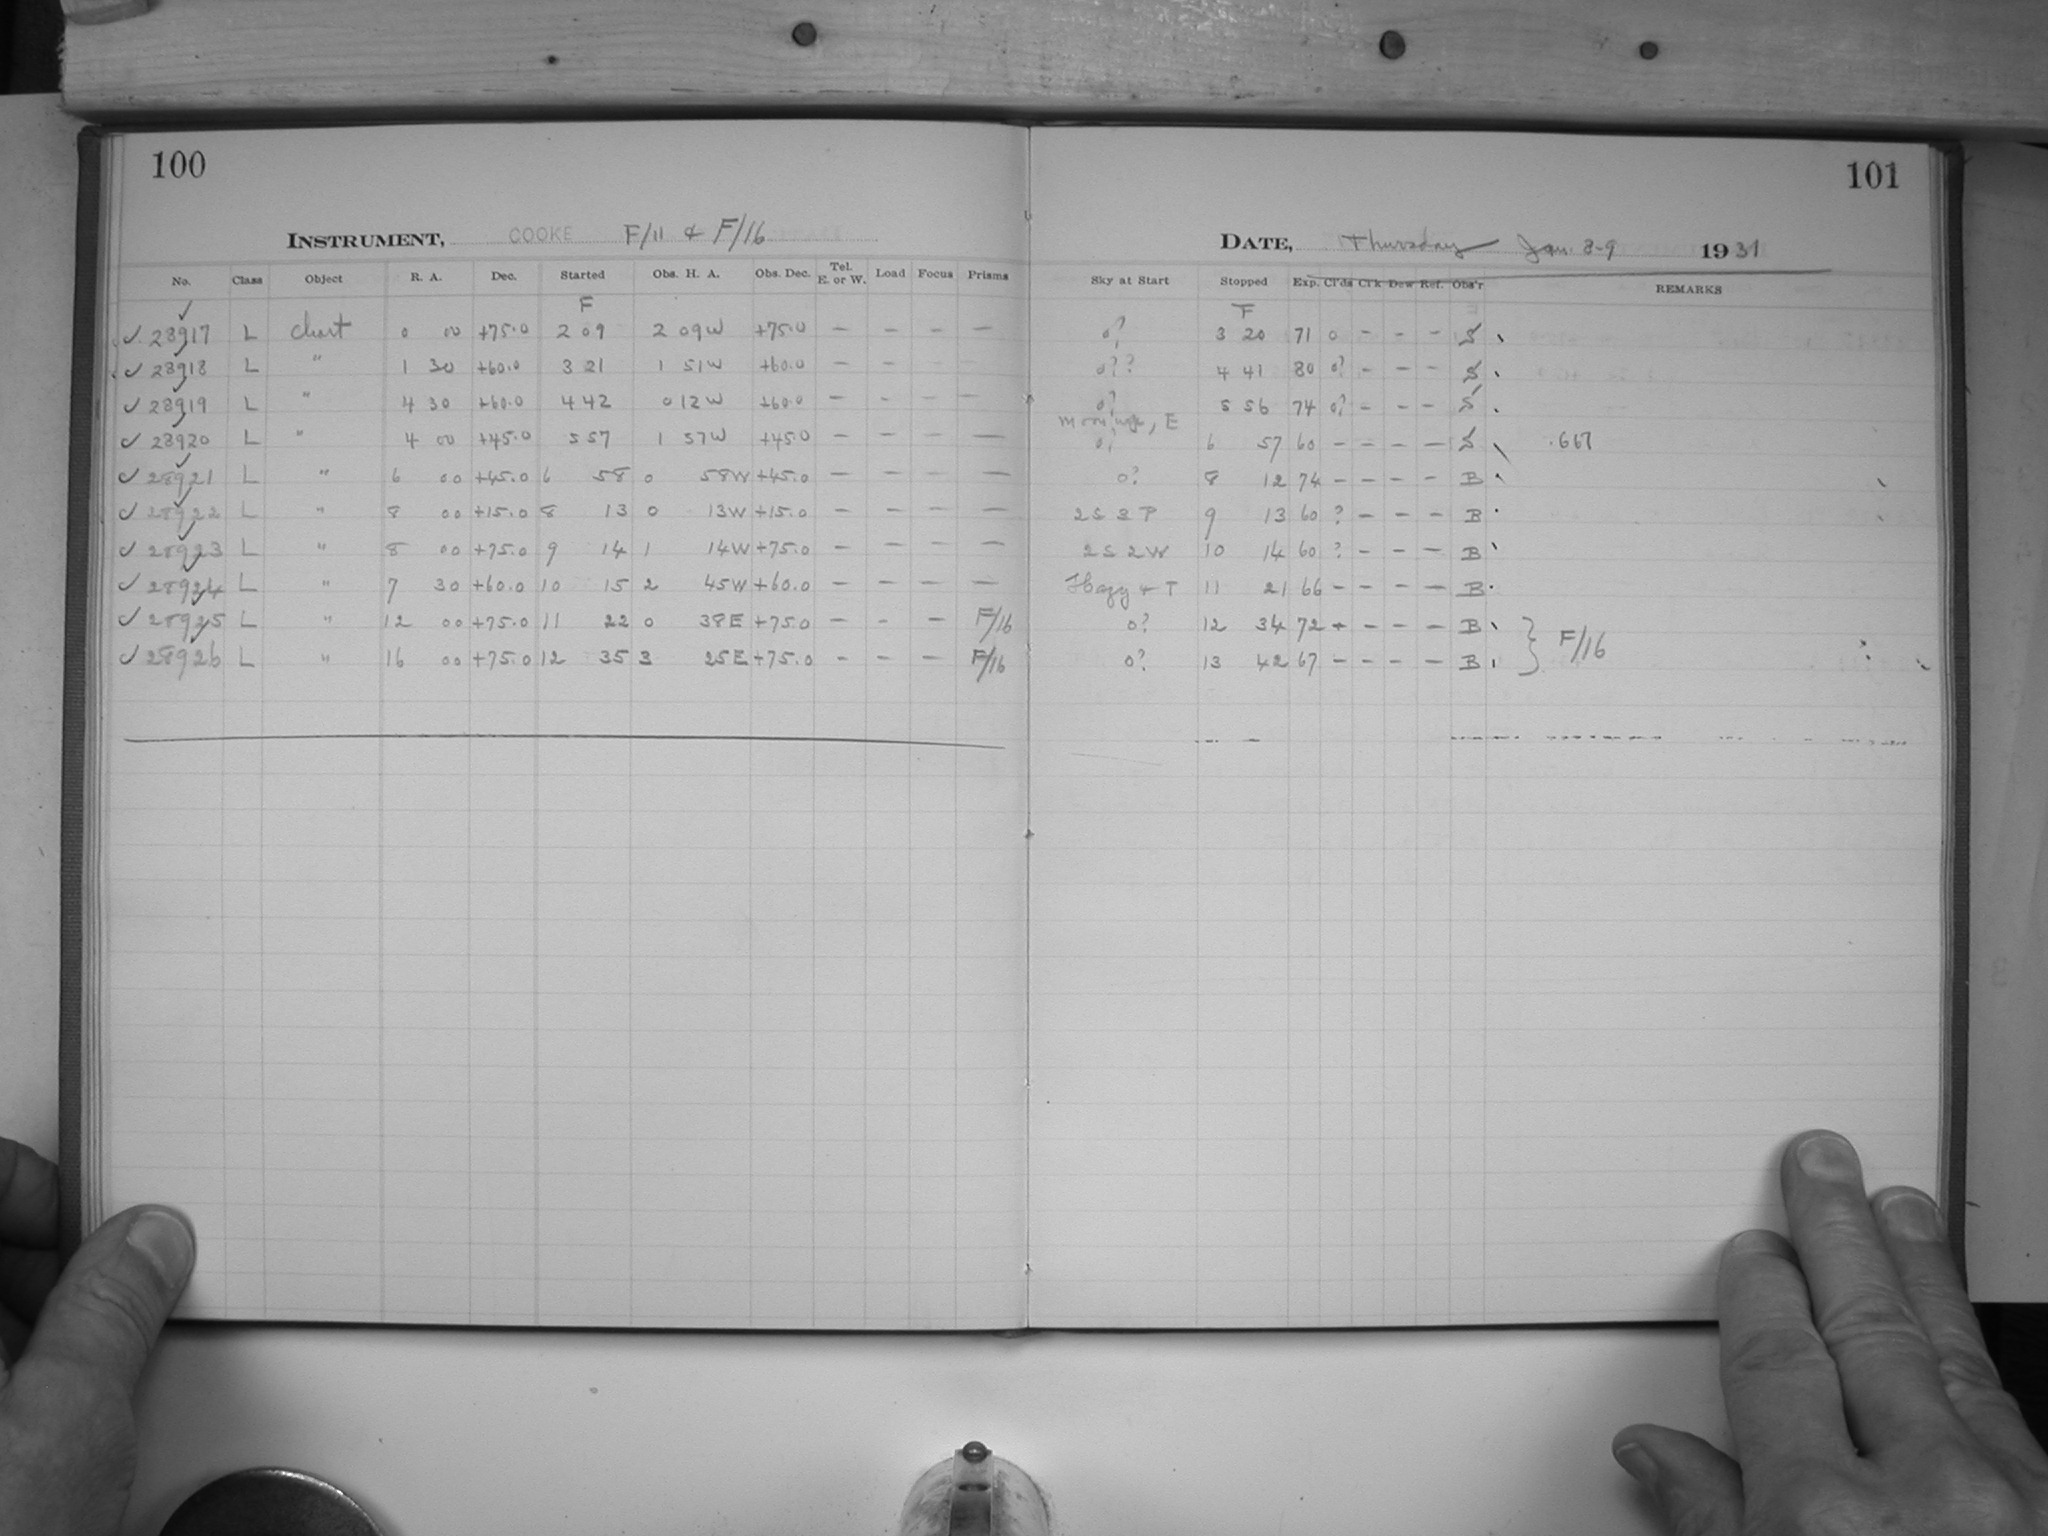 100
INSTRUMENT, COOKE F/11 & F/16
No. Class Object R. A. Dec. Started Obs. H. A. Obs. Dec. Tel. E. or W. Load Focus Prisms
F
✓ 28917 L Chart 0 00 +75.0 2 09 2 09W +75.0 — — — —
✓ 28918 L " 1 30 +60.0 3 21 1 51W +60.0 — — — —
✓ 28919 L " 4 30 +60.0 4 42 0 12W +60.0 — — — —
✓ 28920 L " 4 00 +45.0 5 57 1 57W +45.0 — — — —
✓ 28921 L " 6 00 +45.0 6 58 0 58W +45.0 — — — —
✓ 28922 L " 8 00 +15.0 8 13 0 13W +15.0 — — — —
✓ 28923 L " 8 00 +75.0 9 14 1 14W +75.0 — — — —
✓ 28924 L " 7 30 +60.0 10 15 2 45W +60.0 — — — —
✓ 28925 L " 12 00 +75.0 11 22 0 38E +75.0 — - — F/16
✓ 28926 L " 16 00 +75.0 12 35 3 25E +75.0 - - — F/16
101
DATE, Thursday Jan. 8-9 1931
Sky at Start Stopped Exp. Cl'ds Cl'k Dew Ref. Obs'r REMARKS
F
0? 3 20 71 0 - - - S
0?? 4 41 80 0? - - - S
0? 5 56 74 0? - - - S
E
0? 6 57 60 - - - - S .667
0? 8 12 74 - - - - B
2S 3P 9 13 60 ? - - - B
2S 2W 10 14 60 ? - - - B
Hazy + T 11 21 66 - - - - B
0? 12 34 72 - - - - B
F/16
0? 13 42 67 - - - - B